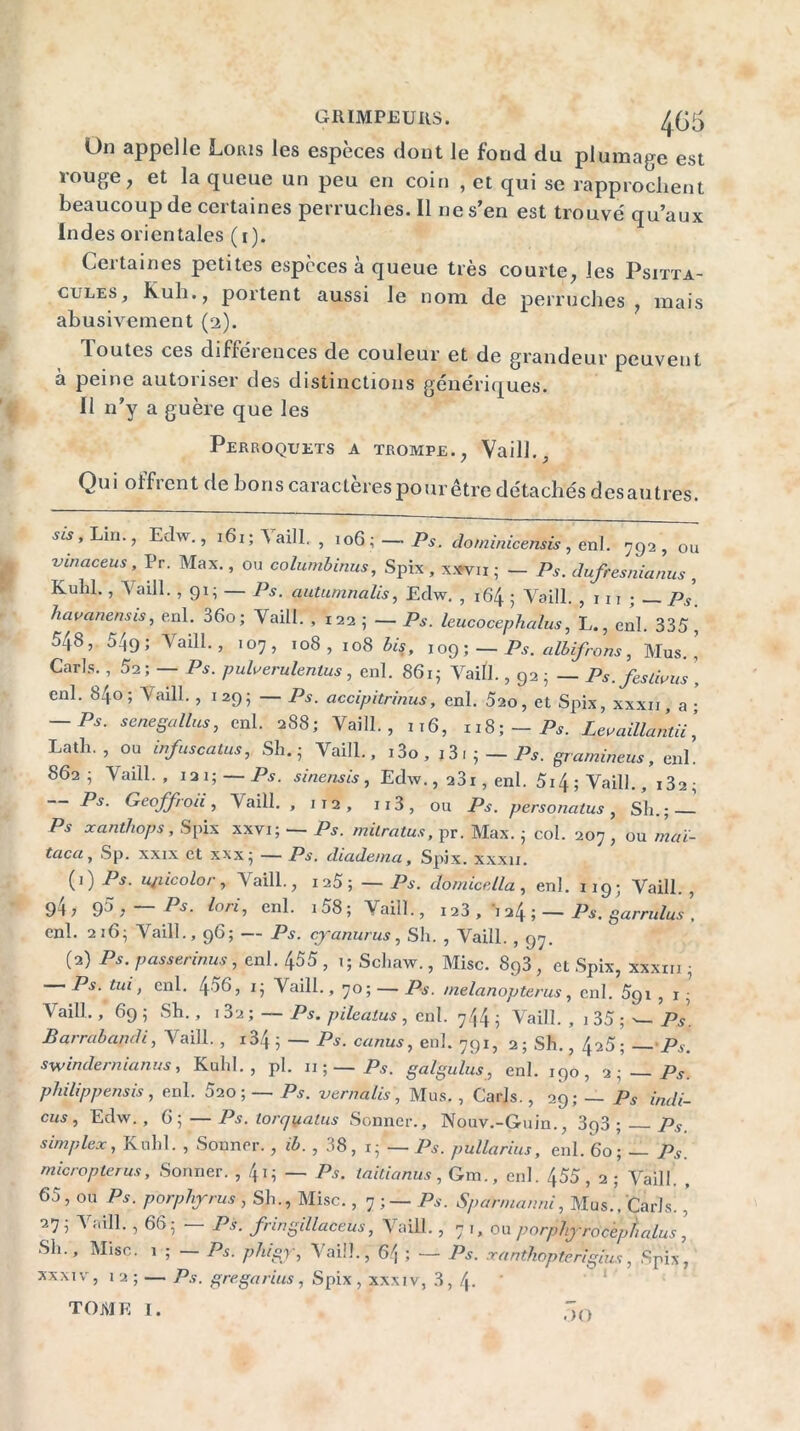 GRIMPEURS. 465
On appelle Loris les espèces dont le fond du plumage est
rouge, et la queue un peu en coin , et qui se rapprochent
beaucoup de certaines perruches. Il ne s'en est trouvé qu'aux
Indes orientales (1).
Certaines petites espèces à queue très courte, les Psitta-
cules, Kuh., portent aussi le nom de perruches , mais
abusivement (2).
Toutes ces différences de couleur et de grandeur peuvent
à peine autoriser des distinctions génériques.
Il n'y a guère que les
Perroquets a trompe., Vaill.,
Qui offrent de bons caractères pour être détachés des autres.
sis, Lin., Edw., 161; Vaill. , 106; — Ps. dominicensis, enl. 792, ou
vinaceus, Pr. Max., ou columbinus, Spix, xxvii; — Ps. dufresnianus ,
Kuhl., Vaill. , 91; — Ps. autumnalis, Edw. , 164; Vaill. , 111 ; — Ps.
havanensis, enl. 360; Vaill. , 122; — Ps. leucocephalus, L., enl. 335,
548, 549; Vaill., 107, 108, 108 bis, 109; — Ps. albifrons, Mus.,
Carls. , 52; — Ps. pulverulentus, enl. 861; Vaill., 92; — Ps. festivus ,
enl. 840; Vaill. , 129; — Ps. accipitrinus, enl. 520, et Spix, xxxii, a;
— Ps. senegallus, enl. 288; Vaill., 116, 118; — Ps. Levaillantii,
Lath. , ou infuscatus, Sh.; Vaill., 130, 131; — Ps. gramineus, enl.
862; Vaill. , 121; — Ps. sinensis, Edw., 231, enl. 514; Vaill., 132;
— Ps. Geoffroii, Vaill. , 112, 113, ou Ps. personatus, Sh.; —
Ps xanthops, Spix xxvi; — Ps. mitratus, pr. Max.; col. 207, ou maï-
taca, Sp. xxix et xxx; — Ps. diadema, Spix. xxxii.
(1) Ps. unicolor, Vaill., 125; — Ps. domicella, enl. 119; Vaill.,
94, 95, — Ps. lori, enl. 158; Vaill., 123, 124; — Ps. garrulus ,
enl. 216; Vaill., 96; — Ps. cyanurus, Sh. , Vaill. , 97.
(2) Ps. passerinus, enl. 455, 1; Schaw., Misc. 893, et Spix, xxxiii;
— Ps. tui, enl. 456, 1; Vaill., 70; — Ps. melanopterus, enl. 591, 1;
Vaill., 69; Sh., 132; — Ps. pileatus, enl. 744; Vaill. , 135; — Ps.
Barrabandi, Vaill. , 134; — Ps. canus, enl. 791, 2; Sh., 425; — Ps.
swindernianus, Kuhl. , pl. 11; — Ps. galgulus, enl. 190, 2; — Ps.
philippensis, enl. 520; — Ps. vernalis, Mus. , Carls., 29; — Ps indi-
cus, Edw., 6; — Ps. torquatus Sonner., Nouv.-Guin., 393; — Ps.
simplex, Kuhl. , Sonner., ib. , 38, 1; — Ps. pullarius, enl. 60; — Ps.
micropterus, Sonner. , 41; — Ps. taitianus, Gm., enl. 455, 2; Vaill. ,
65, ou Ps. porphyrus, Sh., Misc., 7; — Ps. Sparmanni, Mus., Carls.,
27; Vaill. , 66; — Ps. fringillaceus, Vaill. , 71, ou porphyrocephalus,
Sh., Misc. 1; — Ps. phigy, Vaill., 64; — Ps. xanthopterigius, Spix,
xxxiv, 12; — Ps. gregarius, Spix, xxxiv, 3, 4.
TOME I. 30